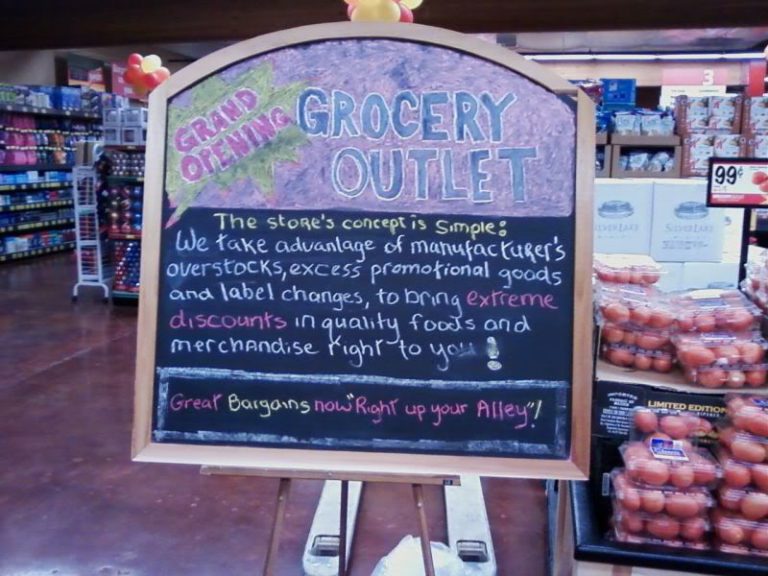 GRAND
OPENING
GROCERY
OUTLET
The store's concept is simple:
We take advantage of manufacturer's
overstocks, excess promotional goods
and label changes, to bring extreme
discounts in quality foods and
merchandise right to you!
Great Bargains now "Right up your Alley"!
3
99¢
SILVER LAKE
SILVER LAKE
LIMITED EDITION